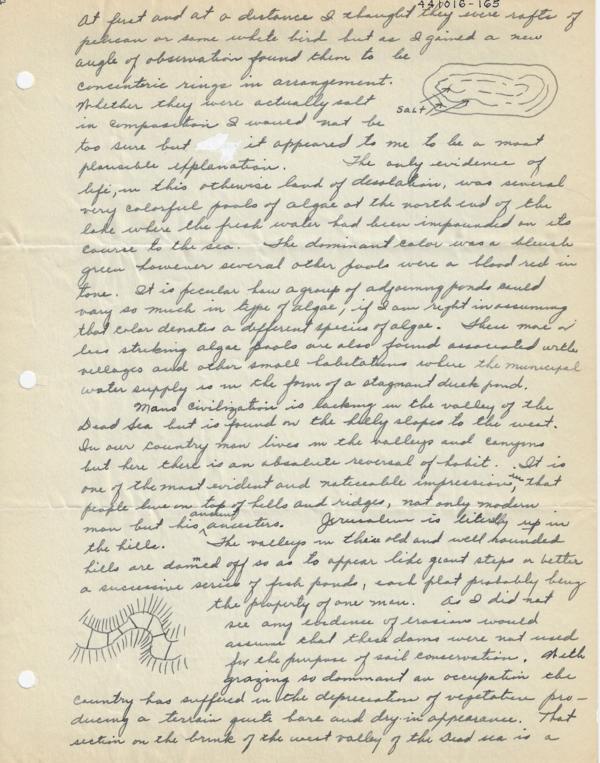 441016-165
At first and at a distance I thought they were rafts of
pelican or some white bird but as I gained a new
angle of observation found them to be
concentric rings in arrangement.
Whether they were actually salt
in composition I would not be
salt
too sure but it appeared to me to be a most
plausible explanation. The only evidence of
life, in this otherwise land of desolation, was several
very colorful pools of algae at the north end of the
lake where the fresh water had been impounded on its
course to the sea. The dominant color was a bluish
green however several other pools were a blood red in
tone. It is peculiar how a group of adjoining ponds could
vary so much in type of algae, if I am right in assuming
that color denotes a different species of algae. These more or
less striking algae pools are also found associated with
villages and other small habitations where the municipal
water supply is in the form of a stagnant duck pond.
Mans civilization is lacking in the valley of the
Dead Sea but is found on the hilly slopes to the west.
In our country man lives in the valleys and canyons
but here there is an absolute reversal of habit. It is
one of the most evident and noticeable impressions, that
people live on top of hills and ridges, not only modern
man but his ancient ancestors. Jerusalem is literally up in
the hills. The valleys in these old and well rounded
hills are dammed off so as to appear like giant steps or better
a successive series of fish ponds, each plat probably being
the property of one man. As I did not
see any evidence of erosion would
assume that these dams were not used
for the purpose of soil conservation. With
grazing so dominant an occupation the
country has suffered in the depreciation of vegetation pro-
ducing a terrain quite bare and dry in appearance. That
section on the brink of the west valley of the Dead sea is a